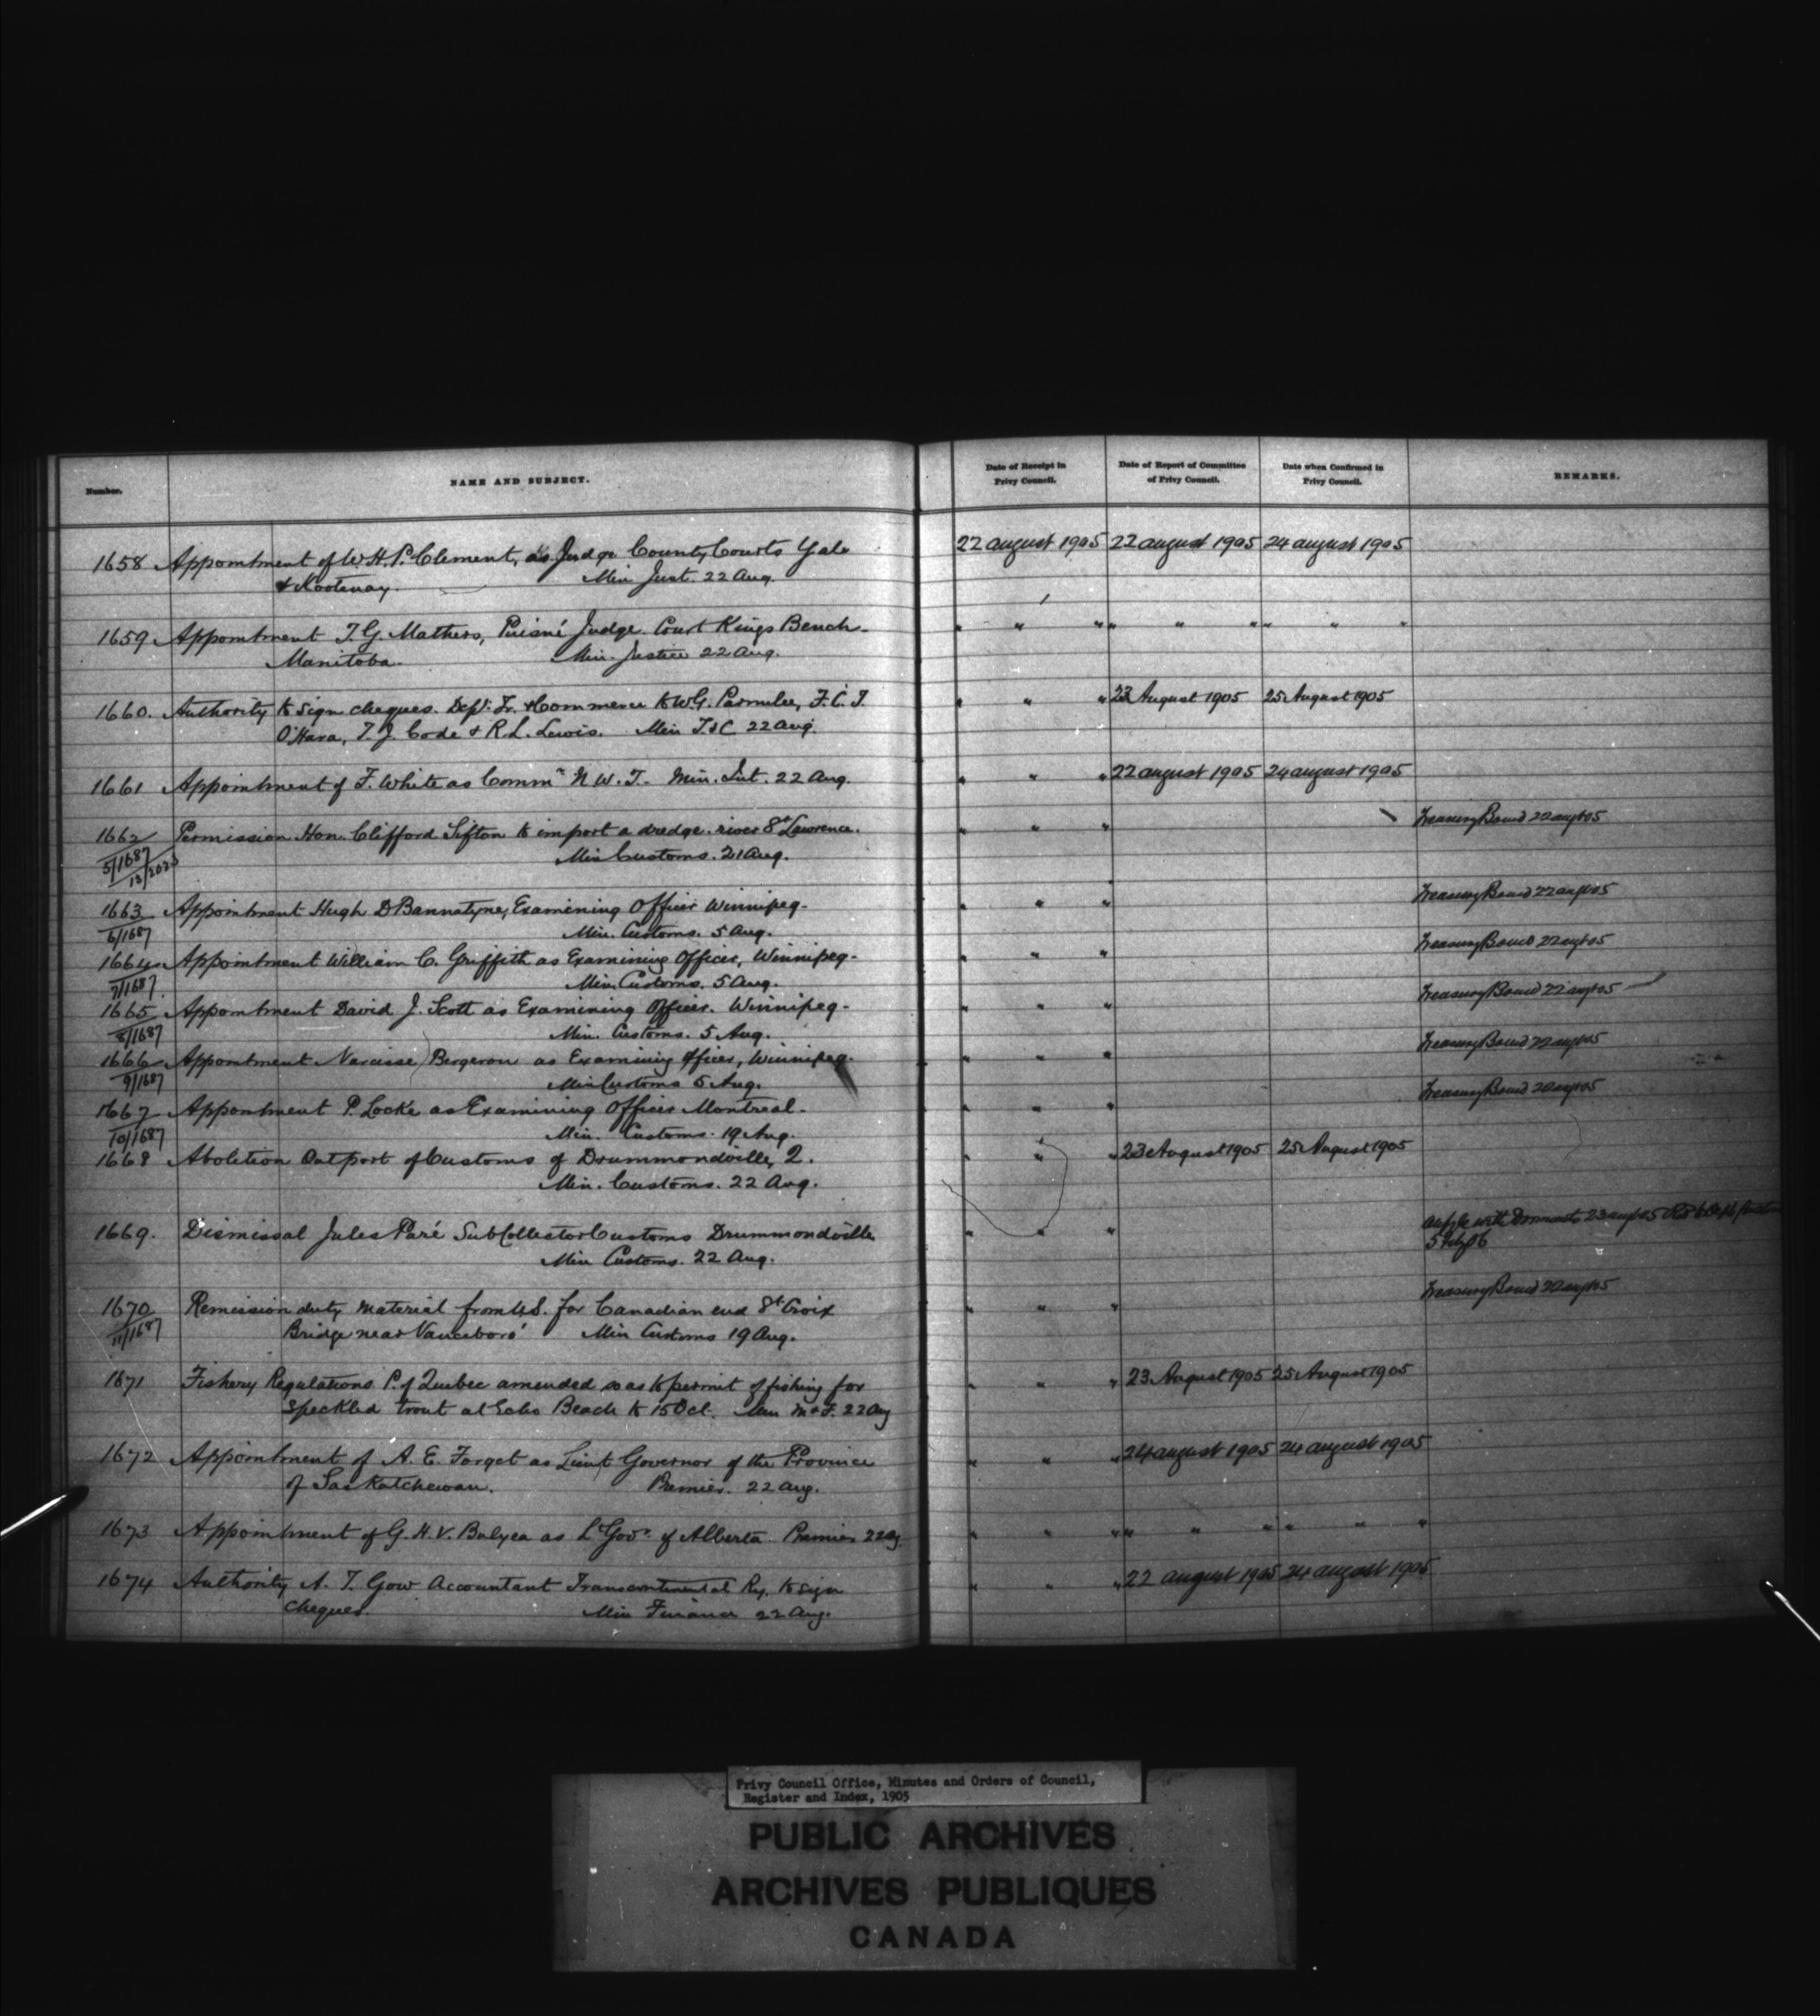 Number.
NAME AND SUBJECT.
Date of Receipt in Privy Council.
Date of Report of Committee of Privy Council.
Date when Confirmed in Privy Council.
REMARKS.
1658 Appointment of W. H. P. Clement, as Judge County Courts Yale 22 august 1905 22 august 1905 24 august 1905
& Kootenay. Min Just. 22 Aug.
1659 Appointment T. G. Mathers, Puisné Judge Court Kings Bench - " " " " " " " " "
Manitoba. Min. Justice 22 Aug.
1660. Authority to sign cheques. Dept. Tr. & Commerce to W. G. Parmelee, F. C. T. " " " 23 August 1905 25 August 1905
O'Hara, T. J. Code & R. L. Lewis. Min T & C 22 Aug.
1661 Appointment of F. White as Commr N. W. T. - Min. Int. 22 Aug. " " " 22 august 1905 24 august 1905
1662 Permission Hon. Clifford Sifton to import a dredge. river St Lawrence. " " " Treasury Board 22 augt 05
5/1687 Min Customs. 21 Aug.
13/2023
1663 Appointment Hugh D Bannatyne, Examining Officer Winnipeg - " " " Treasury Board 22 augt 05
6/1687 Min. Customs. 5 Aug.
1664 Appointment William C. Griffith as Examining Officer, Winnipeg - " " " Treasury Board 22 augt 05
7/1687 Min. Customs. 5 Aug.
1665 Appointment David J. Scott as Examining Officer. Winnipeg - " " " Treasury Board 22 augt 05
8/1687 Min. Customs. 5 Aug.
1666 Appointment Narcisse Bergeron as Examining Officer, Winnipeg - " " " Treasury Board 22 augt 05
9/1687 Min Customs 5 Aug.
1667 Appointment P. Locke as Examining Officer Montreal - " " " Treasury Board 20 augt 05
10/1687 Min. Customs. 19 Aug.
1668 Abolition Outport of Customs of Drummondville, Q. " " " 23 August 1905 25 August 1905
Min. Customs. 22 Aug.
1669. Dismissal Jules Paré Sub Collector Customs Drummondville " " " 23 augt 05
Min Customs. 22 Aug. 5 Feby 06
1670 Remission duty material from U.S. for Canadian end St Croix " " " Treasury Board 20 augt 05
11/1687 Bridge near Vanceboro' Min Customs 19 Aug.
1671 Fishery Regulations P. of Quebec amended so as to permit of fishing for " " " 23 August 1905 25 August 1905
speckled trout at Echo Beach to 15 Oct. Min M & F. 22 Aug
1672 Appointment of A. E. Forget as Lieut Governor of the Province " " " 24 august 1905 24 august 1905
of Saskatchewan. Premier. 22 Aug.
1673 Appointment of G. H. V. Bulyea as Lt Govr. of Alberta Premier 22 Aug. " " " " " " " " "
1674 Authority A. T. Gow Accountant Transcontinental Ry. to sign " " " 22 august 1905 24 august 1905
cheques. Min Finance 22 Aug.
Privy Council Office, Minutes and Orders of Council,
Register and Index, 1905
PUBLIC ARCHIVES
ARCHIVES PUBLIQUES
CANADA